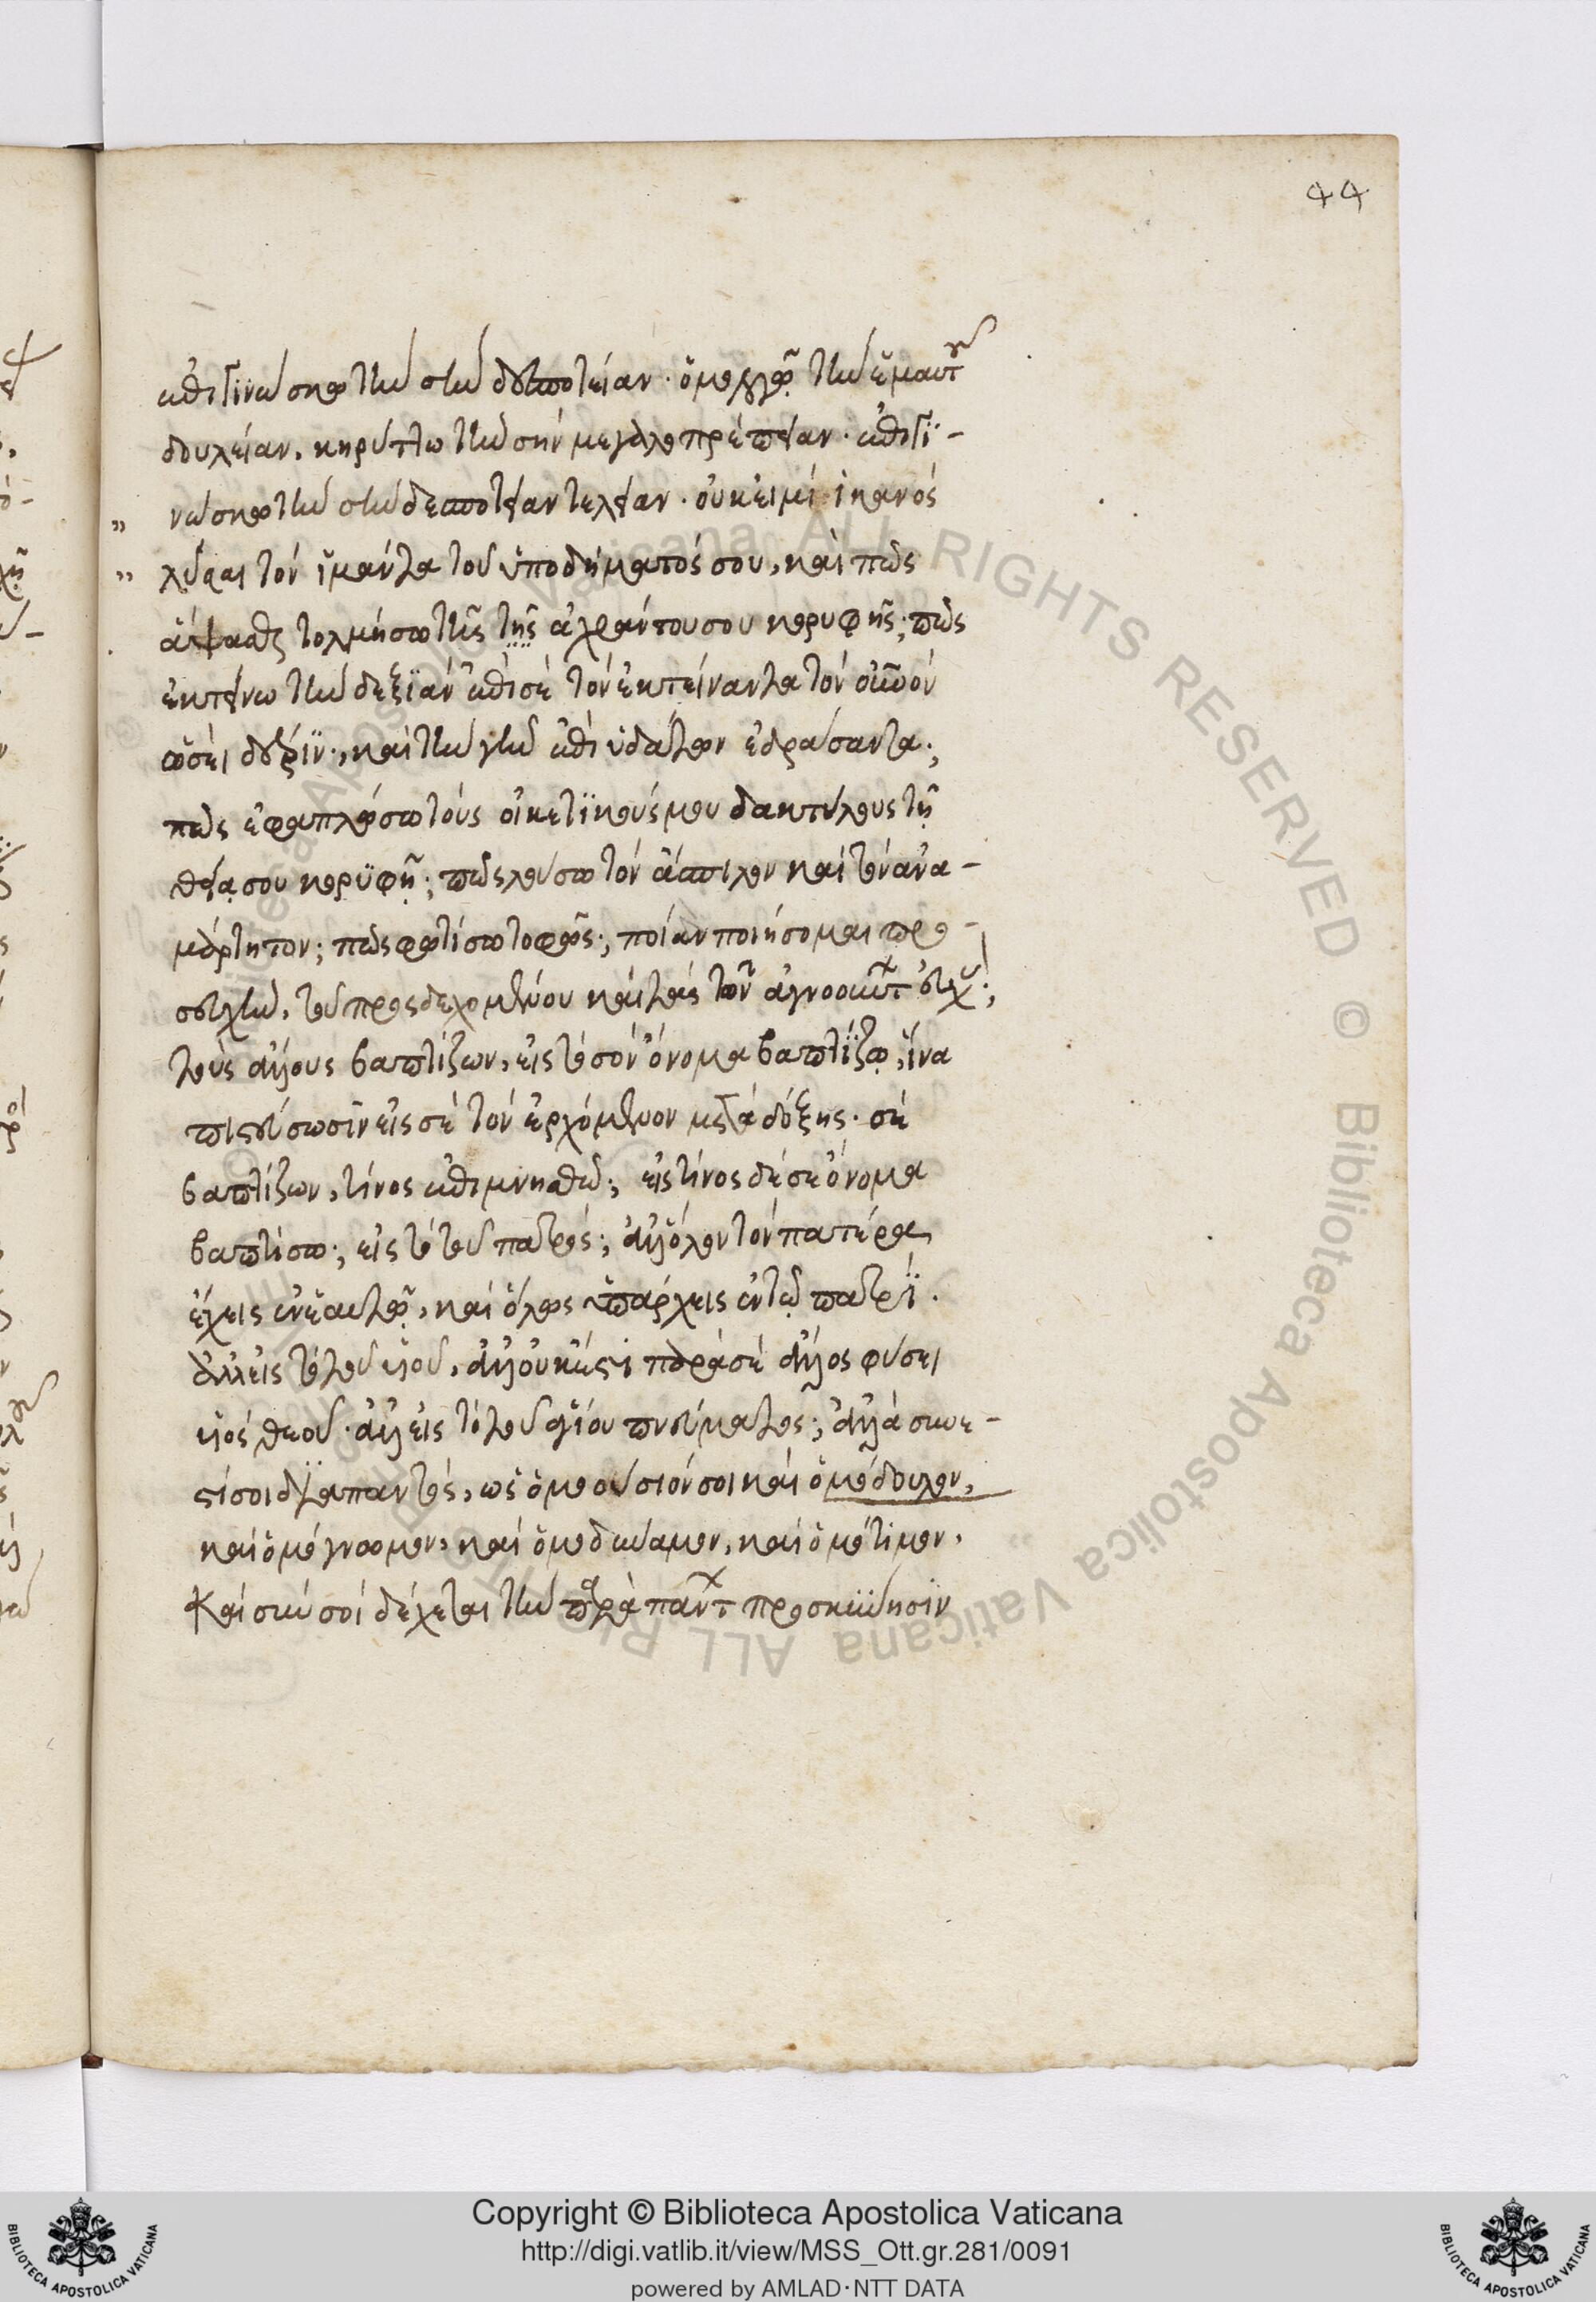 44
ἐπιγινώσκω τὴν σὴν δεσποτείαν· ὁμολογῶ τὴν ἐμαυτοῦ
δουλείαν, κηρύττω τὴν σὴν μεγαλοπρέπειαν· ἐπιγι-
νώσκω τὴν σὴν δεσποτείαν τελείαν· οὐκ εἰμὶ ἱκανός
λύσαι τὸν ἱμάντα τοῦ ὑποδήματός σου, καὶ πῶς
ἅψασθαι τολμήσω τῆς τῆς ἀχράντου σου κορυφῆς; πῶς
ἐκτείνω τὴν δεξιὰν ἐπὶ σὲ τὸν ἐκτείναντα τὸν οὐρανὸν
ὡσεὶ δέρριν; καὶ τὴν γῆν ἐπὶ ὑδάτων ἑδράσαντα;
πῶς ἐφαπλώσω τοὺς οἰκετικούς μου δακτύλους τῇ
θείᾳ σου κορυφῇ; πῶς λούσω τὸν ἄσπιλον καὶ τὸν ἀνα-
μάρτητον; πῶς φωτίσω τὸ φῶς; ποίαν ποιήσομαι προ-
σευχὴν, τοῦ προσδεχομένου καὶ τὰς τῶν ἀγνοούντων εὐχάς;
τοὺς ἄλλους βαπτίζων, εἰς τὸ σὸν ὄνομα βαπτίζω, ἵνα
πιστεύσωσιν εἰς σὲ τὸν ἐρχόμενον μετὰ δόξης· σὲ
βαπτίζων, τίνος ἐπιμνησθῶ; εἰς τίνος δέ σε ὄνομα
βαπτίσω; εἰς τὸ τοῦ πατρός; ἀλλ' ὅλον τὸν πατέρα
ἔχεις ἐν ἑαυτῷ, καὶ ὅλος ὑπάρχεις ἐν τῷ πατρί.
ἀλλ' εἰς τὸ τοῦ υἱοῦ, ἀλλ' οὐκ ἔστι παρὰ σὲ ἄλλος φύσει
υἱὸς θεοῦ· ἀλλ' εἰς τὸ τοῦ ἁγίου πνεύματος; ἀλλὰ σύνε-
στί σοι διὰ παντός, ὡς ὁμοούσιόν σοι καὶ ὁμόδουλον,
καὶ ὁμόγνωμον, καὶ ὁμοδύναμον, καὶ ὁμότιμον,
Καὶ σὺν σοὶ δέχεται τὴν παρὰ πάντων προσκύνησιν
Copyright © Biblioteca Apostolica Vaticana
http://digi.vatlib.it/view/MSS_Ott.gr.281/0091
powered by AMLAD·NTT DATA